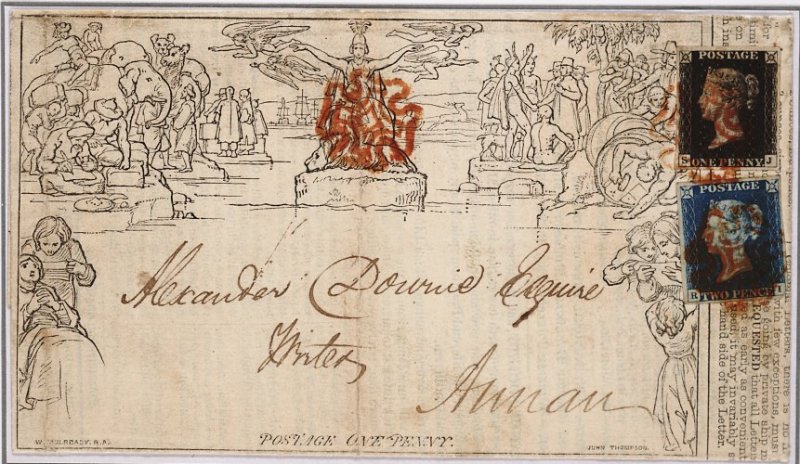 POSTAGE
S ONE PENNY J
POSTAGE
R TWO PENCE I
Alexander Downie Esquire
Writer
Annan
W. MULREADY. R.A.
POSTAGE ONE PENNY.
JOHN THOMPSON.
Letters, there is no
with few exceptions, must
going by Private ship m
REQUESTED that all Letter
as early as convenient
used, it may invariably s
hand side of the Letter.